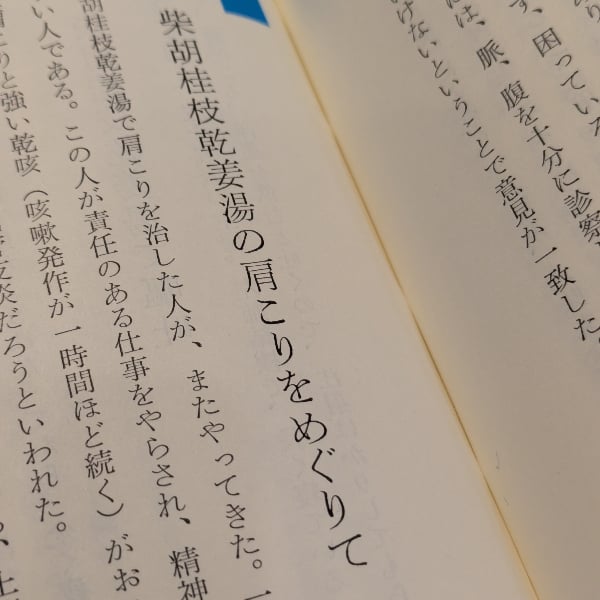 り
す、困っている
には、脈、腹を十分に診察
けないということで意見が一致した。
柴胡桂枝乾姜湯の肩こりをめぐりて
胡桂枝乾姜湯で肩こりを治した人が、またやってきた。一
い人である。この人が責任のある仕事をやらされ、精神
こりと強い乾咳（咳嗽発作が一時間ほど続く）がお
炎だろうといわれた。